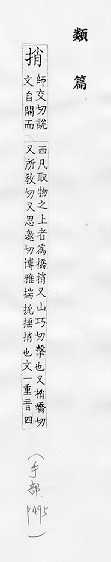 類篇
捎
師交切說
文自關而
西凡取物之上者為撟捎又山巧切擊也又切
又所教切又思邀切博雅捎也文一重音四
(手部 P495)